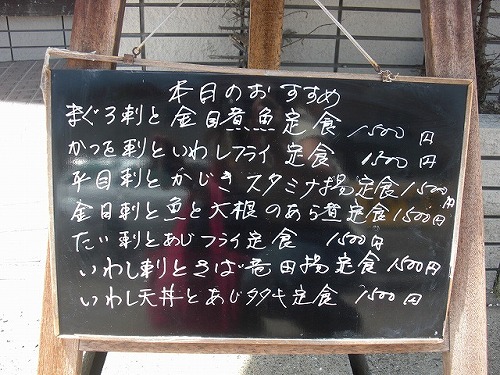 本日のおすすめ
まぐろ刺と金目煮魚定食 1500円
かつを刺といわしフライ定食 1500円
平目刺とかじきスタミナ揚定食1500円
金目刺と魚と大根のあら煮定食1500円
たい刺とあじフライ定食 1500円
いわし刺とさば竜田揚定食1500円
いわし天丼とあじタタキ定食 1500円